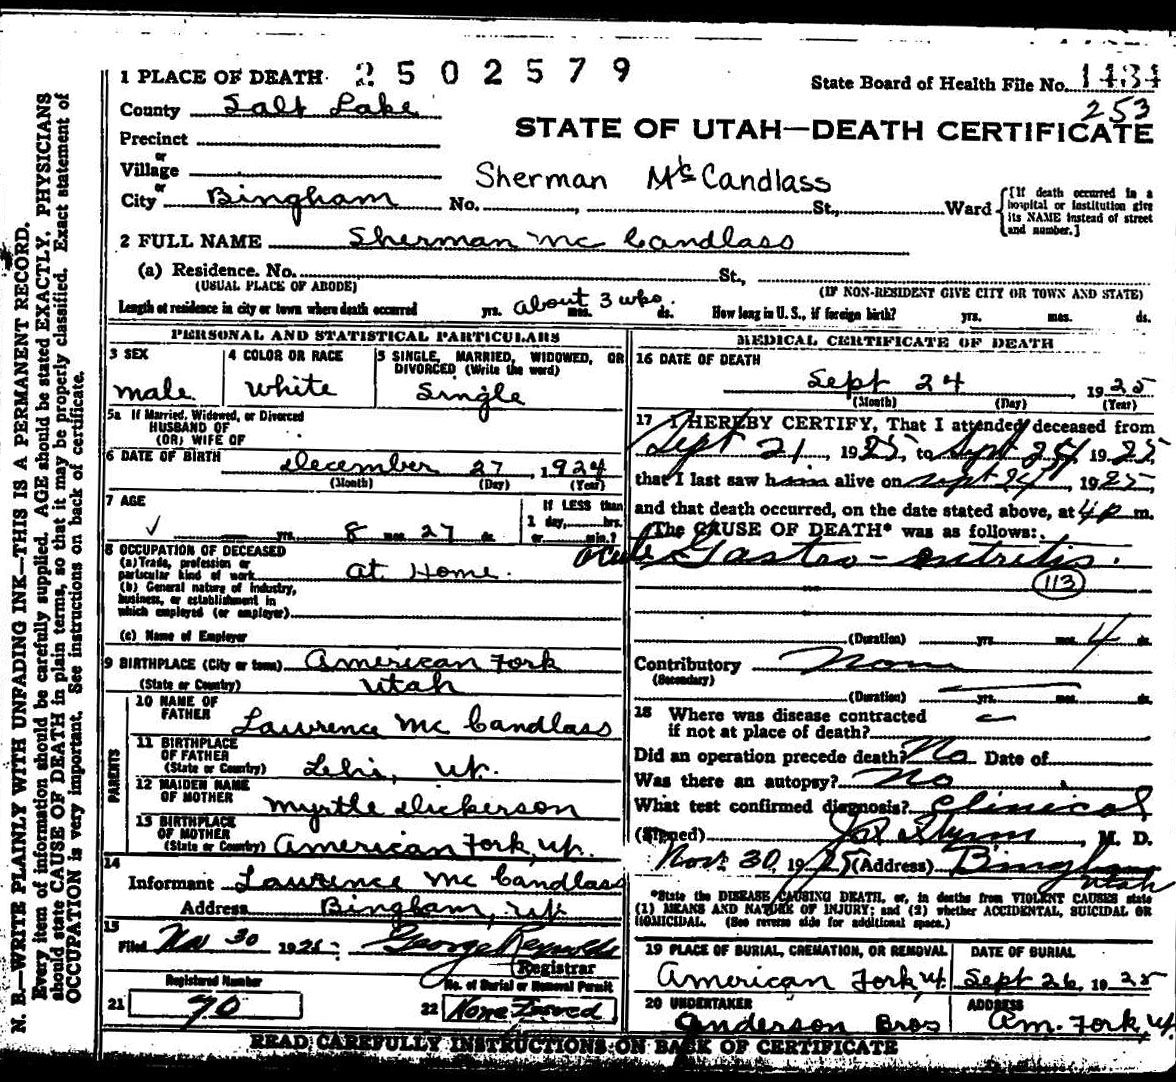 1 PLACE OF DEATH 2502579
State Board of Health File No. 1434
253
County Salt Lake
STATE OF UTAH—DEATH CERTIFICATE
Precinct
or
Village
Sherman McCandlass
or
City Bingham No. , St., Ward
[If death occurred in a hospital or institution give its NAME instead of street and number.]
2 FULL NAME Sherman Mc Candlass
(a) Residence. No. St.,
(USUAL PLACE OF ABODE) (IF NON-RESIDENT GIVE CITY OR TOWN AND STATE)
Length of residence in city or town where death occurred yrs. about 3 wks. mos. ds. How long in U. S., if foreign birth? yrs. mos. ds.
PERSONAL AND STATISTICAL PARTICULARS
3 SEX
male
4 COLOR OR RACE
white
5 SINGLE, MARRIED, WIDOWED, OR DIVORCED (Write the word)
Single
5a If Married, Widowed, or Divorced
HUSBAND OF
(OR) WIFE OF
6 DATE OF BIRTH December 27, 1924
(Month) (Day) (Year)
7 AGE
If LESS than
1 day, hrs.
or min.?
yrs. 8 mos. 27 ds.
8 OCCUPATION OF DECEASED
(a) Trade, profession or
particular kind of work At Home.
(b) General nature of industry,
business, or establishment in
which employed (or employer)
(c) Name of Employer
9 BIRTHPLACE (City or town) American Fork
(State or Country) Utah
PARENTS
10 NAME OF
FATHER Lawrence Mc Candlass
11 BIRTHPLACE
OF FATHER
(State or Country) Lehi, Ut.
12 MAIDEN NAME
OF MOTHER Myrtle Dickerson
13 BIRTHPLACE
OF MOTHER
(State or Country) American Fork, Ut.
14
Informant Lawrence Mc Candlass
Address Bingham, Ut
15
Filed Nov 30 1925 George Reynolds
Registrar
Registered Number
21 90
No. of Burial or Removal Permit
22 None Issued
MEDICAL CERTIFICATE OF DEATH
16 DATE OF DEATH
Sept 24, 1925
(Month) (Day) (Year)
17 I HEREBY CERTIFY, That I attended deceased from
Sept 21, 1925, to Sept 24, 1925,
that I last saw him alive on Sept 24, 1925,
and that death occurred, on the date stated above, at 4 P m.
The CAUSE OF DEATH* was as follows:
Acute Gastro-entritis.
113
(Duration) yrs. mos. 4 ds.
Contributory None
(Secondary)
(Duration) yrs. mos. ds.
18 Where was disease contracted
if not at place of death?
Did an operation precede death? No Date of
Was there an autopsy? No
What test confirmed diagnosis? Clinical
(Signed) M. D.
Nov. 30, 1925 (Address) Bingham
Utah
*State the DISEASE CAUSING DEATH, or, in deaths from VIOLENT CAUSES state
(1) MEANS AND NATURE OF INJURY; and (2) whether ACCIDENTAL, SUICIDAL OR
HOMICIDAL. (See reverse side for additional space.)
19 PLACE OF BURIAL, CREMATION, OR REMOVAL
American Fork, Ut
DATE OF BURIAL
Sept 26, 1925
20 UNDERTAKER
Anderson Bros
ADDRESS
Am. Fork, Ut.
READ CAREFULLY INSTRUCTIONS ON BACK OF CERTIFICATE
N. B.—WRITE PLAINLY WITH UNFADING INK—THIS IS A PERMANENT RECORD.
Every item of information should be carefully supplied. AGE should be stated EXACTLY. PHYSICIANS
should state CAUSE OF DEATH in plain terms, so that it may be properly classified. Exact statement of
OCCUPATION is very important. See instructions on back of certificate.